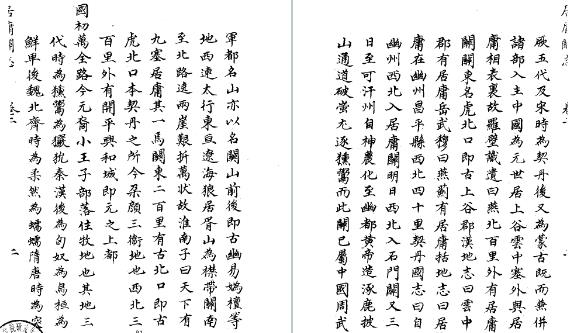 軍都名山亦以名關山前後即古幽易媯檀等
地西連太行東亘遼海狼居胥山為襟帶關南
至北路遠兩崖艱折萬狀故淮南子曰天下有
九塞居庸其一焉關東二百里有古北口即古
虎北口本契丹之所今朶顏三衛地也西北三
百里外有開平興和城即元之上都
國初萬全路今元裔小王子部落住牧地也其地三
代時為獯鬻為玁狁秦漢後為匈奴為烏桓為
鮮卑後魏北齊時為柔然為蠕蠕隋唐時為突
居庸關志 卷二 二
厥五代及宋時為契丹後又為蒙古既而兼併
諸部入主中國為元世居上谷雲中塞外與居
庸相表裏故羅璧識遺曰燕北百里外有居庸
關關東名虎北口即古上谷郡漢地志曰雲中
郡有居庸岳武穆曰燕薊有居庸括地志曰居
庸在幽州昌平縣西北四十里契丹國志曰自
幽州西北入居庸關明日西北入石門關又三
日至可汗州自神農化至幽都黃帝造涿鹿披
山通道破蚩尤逐獯鬻而此關已屬中國周武